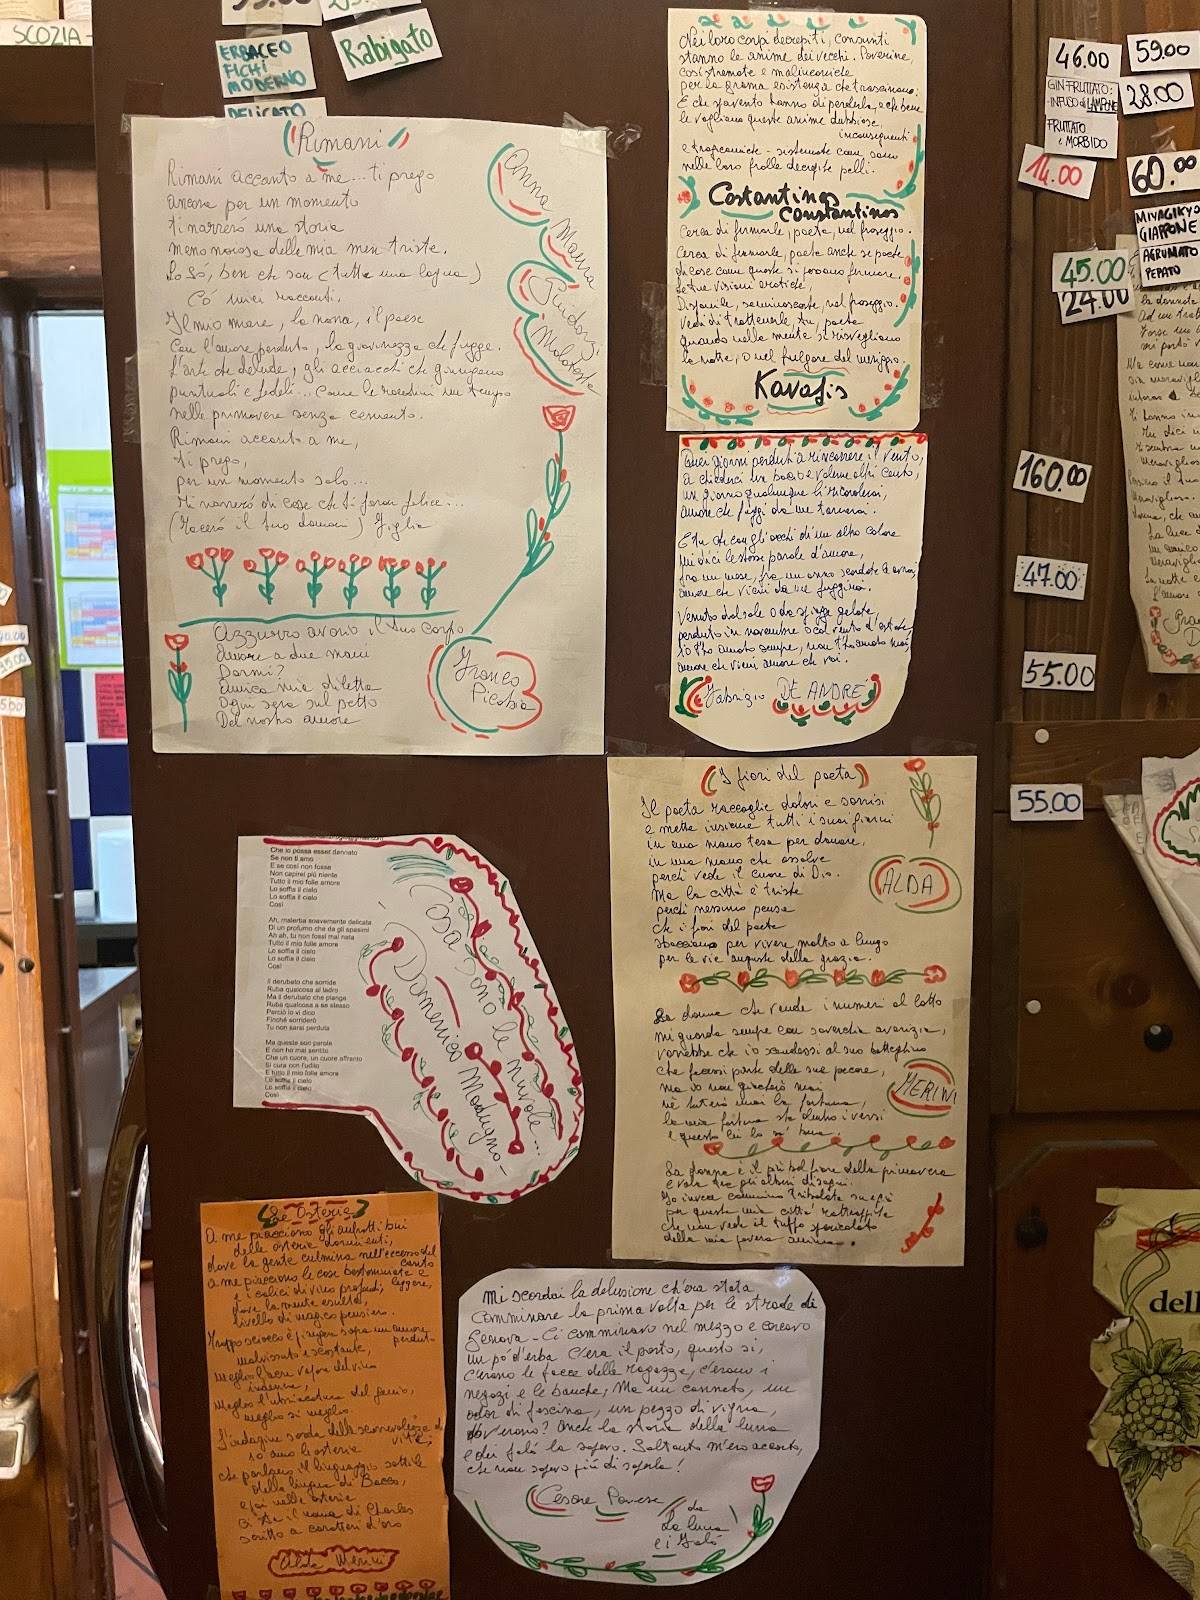 SCOZIA -
ERBACEO
FICHI
MODERNO
DELICATO
Rabigato
Rimani
Rimani accanto a me... ti prego
ancora per un momento
ti narrerò una storia
meno noiosa delle mia men triste.
Lo so, ben che son (tutte una lagna)
i miei racconti.
Il mio mare, la nonna, il paese
Con l'amore perduto, la giovinezza che fugge.
L'arte che delude, gli acciacchi che giungono
puntuali e fedeli... come le rondini un tempo
nelle primavere senza cemento.
Rimani accanto a me,
ti prego,
per un momento solo...
Mi narrerò di cose che ti faran felice...
(Tacerò il tuo domani) Figlia
Anna Maria
Malatesta
Azzurro avorio il tuo corpo
Amore a due mani
Dormi?
Amica mia diletta
Ogni sera sul petto
Del nostro amore
Franco
Nei loro corpi decrepiti, consunti
stanno le anime dei vecchi. Poverine,
così stremate e malinconiche
per la grama esistenza che trascinano.
E che spavento hanno di perderla, e che bene
le vogliono queste anime dubbiose,
inconseguenti
e tragicomiche - sistemate come sono
nelle loro frolle decrepite pelli.
Costantinos
Constantinos
Cerca di fermarle, poeta, nel fraseggio.
Cerca di fermarle, poeta anche se poche
le cose come queste si possono fermare.
Le tue visioni erotiche,
Disponile, seminascoste, nel fraseggio.
Vedi di trattenerle, tu, poeta
quando nella mente si risvegliano
la notte, o nel fulgore del meriggio.
Kavafis
Quei giorni perduti a rincorrere il vento,
a chiederci un bacio e volerne altri cento,
un giorno qualunque li ricorderai,
amore che fuggi da me tornerai.
E tu che con gli occhi di un altro colore
mi dici le stesse parole d'amore,
fra un mese, fra un anno scordate le avrai,
amore che vieni da me fuggirai.
Venuto dal sole o da spiagge gelate,
perduto in novembre o col vento d'estate,
io t'ho amato sempre, non t'ho amato mai,
amore che vieni amore che vai.
Fabrizio DE ANDRÉ
I fiori del poeta
Il poeta raccoglie dolori e sorrisi
e mette insieme tutti i suoi giorni
in una mano tesa per donare,
in una mano che assolve
perché vede il cuore di Dio.
Ma la città è triste
perché nessuno pensa
che i fiori del poeta
sbocciano per vivere molto a lungo
per le vie anguste della grazia.
ALDA
La donna che vende i numeri al lotto
mi guarda sempre con soverchia avarizia,
vorrebbe che io scendessi al suo botteghino
che facessi parte delle sue pecore,
ma io non giocherò mai
né tenterò mai la fortuna,
la mia fortuna sta dentro i versi
e questo lei lo sa bene.
MERINI
La donna è il più bel fiore della primavera
e vola tra gli alberi
Io invece cammino tribolata
per questa mia città
che non vede il tuffo spericolato
della mia povera anima.
Che io possa esser dannato
Se non ti amo
E se così non fosse
Non capirei più niente
Tutto il mio folle amore
Lo soffia il cielo
Lo soffia il cielo
Così
Ah, malerba soavemente delicata
Di un profumo che dà gli spasimi
Ah ah, tu non fossi mai nata
Tutto il mio folle amore
Lo soffia il cielo
Lo soffia il cielo
Così
Il derubato che sorride
Ruba qualcosa al ladro
Ma il derubato che piange
Ruba qualcosa a se stesso
Perciò io vi dico
Finché sorriderò
Tu non sarai perduta
Ma queste son parole
E non ho mai sentito
Che un cuore, un cuore affranto
Si cura con l'udito
E tutto il mio folle amore
Lo soffia il cielo
Lo soffia il cielo
Così
Cosa sono le nuvole...
- Domenico Modugno -
Le Osterie
A me piacciono gli anfratti bui
delle osterie dormienti,
dove la gente culmina nell'eccesso del
canto
a me piacciono le cose bestemmiate e
leggere,
e i calici di vino profondi,
dove la mente esulta,
livello di magico pensiero.
Troppo sciocco è piangere sopra un amore
perduto
malvissuto e scostante,
meglio l'acre vapore del vino
indenne,
meglio l'ubriacatura del genio,
meglio sì meglio
L'indagine sorda delle scorrevolezze di
vite;
io amo le osterie
che parlano il linguaggio sottile
della lingua di Bacco,
e poi nelle osterie
ci sta il nome di Charles
scritto a caratteri d'oro
Alda Merini
Mi scordai la delusione ch'era stata
Camminare la prima volta per le strade di
Genova - Ci camminavo nel mezzo e cercavo
un pò d'erba. C'era il porto, questo sì,
c'erano le facce delle ragazze, c'erano i
negozi e le banche, Ma un canneto, un
odor di fascina, un pezzo di vigna
dov'erano? Anche la storia della luna
e dei falò la sapevo. Soltanto m'ero accorto,
che non sapevo più di saperla!
Cesare Pavese
da
La luna
e i Falò
46.00
GIN FRUTTATO:
- INFUSO di LAMPONE
FRUTTATO
e MORBIDO
14.00
59.00
28.00
60.00
MIYAGIKYO
GIAPPONE
AGRUMATO
PEPATO
45.00
24.00
160.00
47.00
55.00
55.00
dell